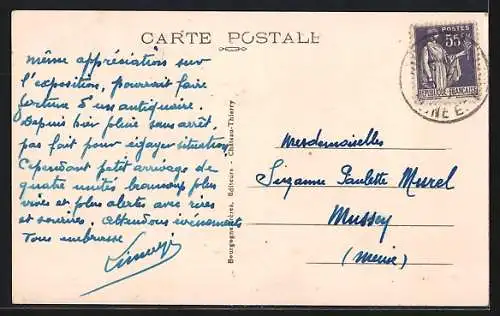 CARTE POSTALE
même appréciation sur
l'exposition, pourrait faire
fortune d'un antiquaire.
Depuis hier pluie sans arrêt,
pas fait pour égayer situation
Cependant petit arrivage de
quatre unités beaucoup plus
vives et plus alertes avec rires
et sourires. Attendons événements
Vous embrasse
Bourgogne Frères, Éditeurs - Château-Thierry
POSTES
55c
REPUBLIQUE FRANÇAISE
NÉE
Mesdemoiselles
Suzanne Paulette Murel
Mussey
(Meuse)